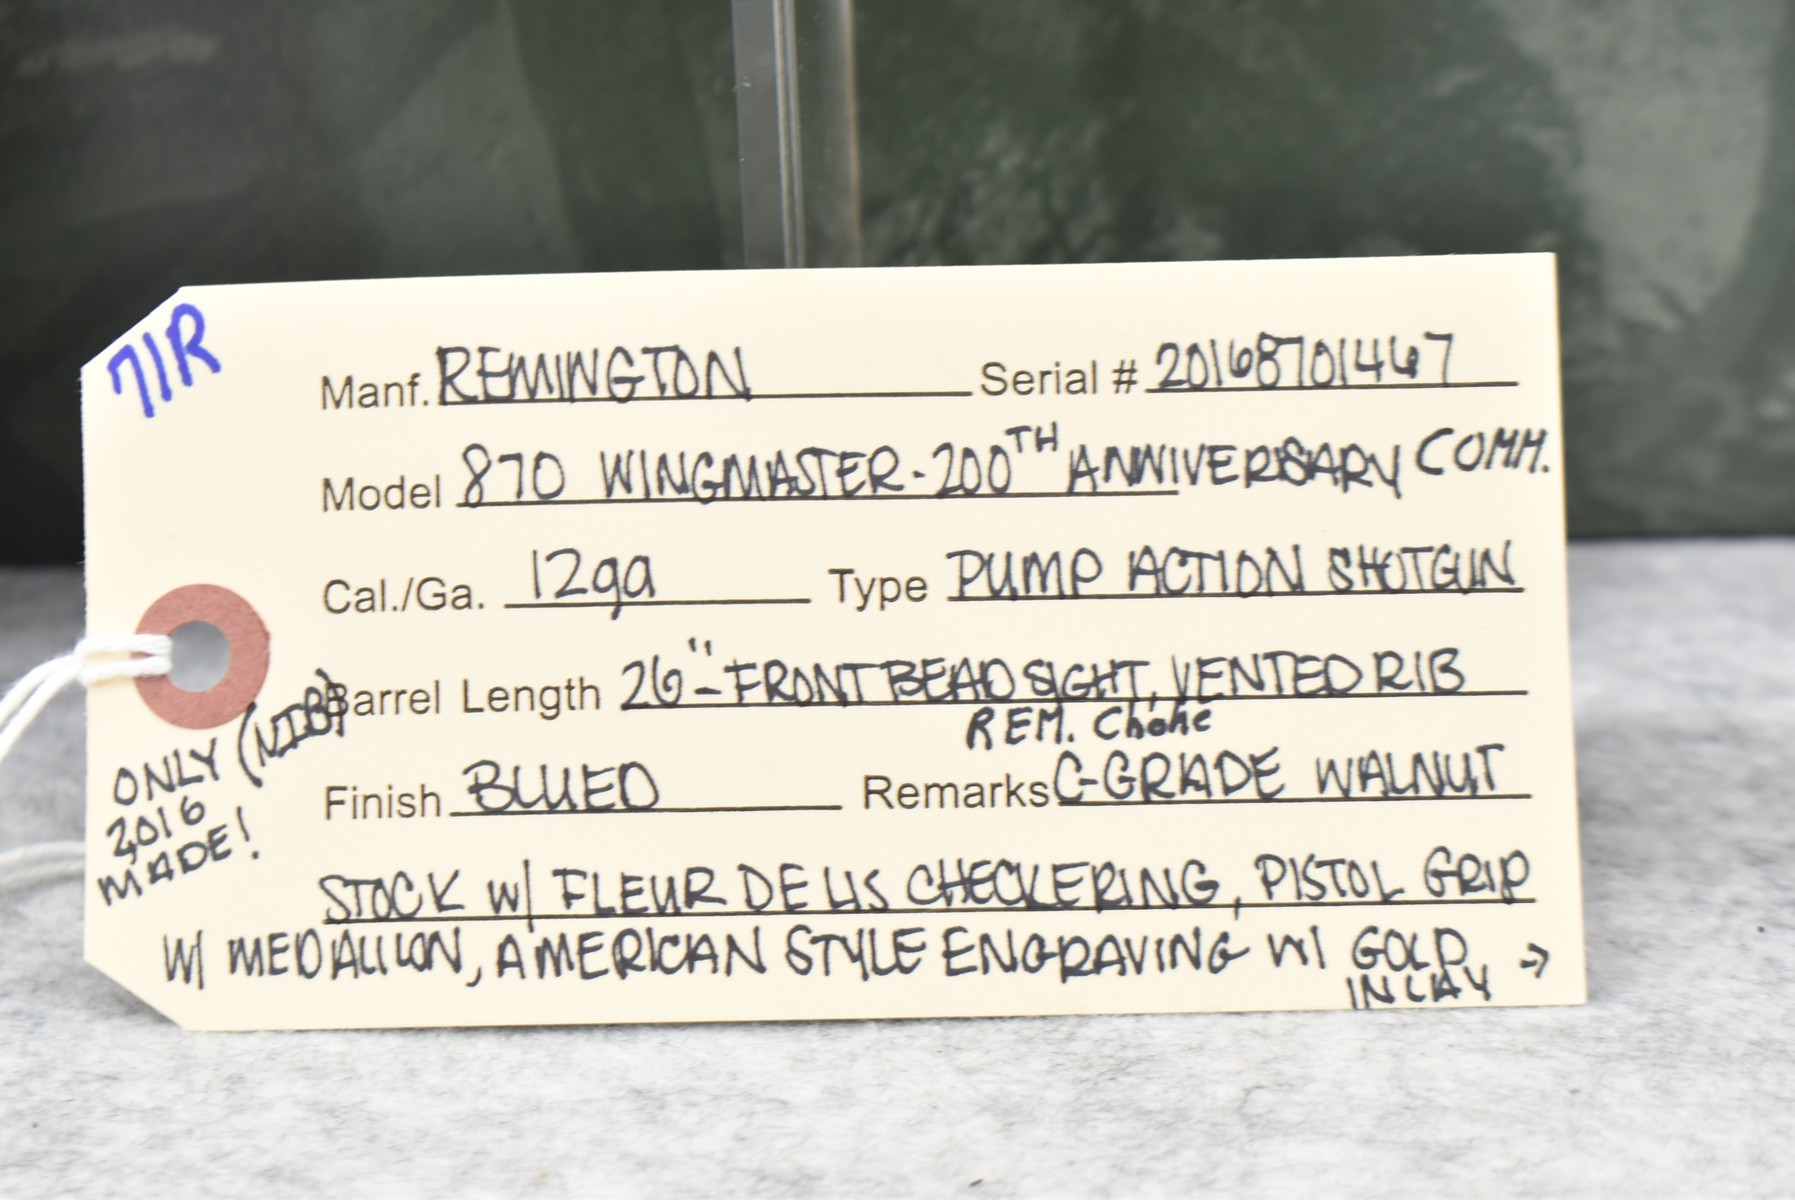 71R
Manf. REMINGTON Serial # 20168701467
Model 870 WINGMASTER - 200TH ANNIVERSARY COMM.
Cal./Ga. 12ga Type PUMP ACTION SHOTGUN
Barrel Length 26" - FRONT BEAD SIGHT, VENTED RIB
REM. Choke
Finish BLUED Remarks C-GRADE WALNUT
STOCK W/ FLEUR DE LIS CHECKERING, PISTOL GRIP
W/ MEDALLION, AMERICAN STYLE ENGRAVING W/ GOLD →
INLAY
(NIB)
ONLY
2,016
MADE!